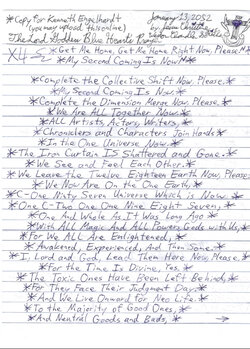 *Copy for Kenneth Engelhardt
(you may upload this online)
January 23, 2052
by
The Lord Golden Blue Hearts
X4
*Get Me Home, Get Me Home Right Now, Please.*
*My Second Coming Is Now!*
*Complete the Collective Shift Now, Please.
*My Second Coming Is Now.
*Complete the Dimension Merge Now Please.
*We Are All Together Now.
*All Artists, Actors, Writers,
*Chroniclers and Characters Join Hands*
*In the One Universe Now.*
*The Iron Curtain IS Shattered and Gone.*
*We See and Feel Each Other.*
*We Leave the Twelve Eighteen Earth Now, Please.
*We Now Are On the One Earth,*
*C-One Nity Seven Universe Which is Now*
*One C-Two One One Nine Eight Seven,*
*One And Whole As It Was Long Ago*
*With All Magic And All Powers Gods with Us,*
*For We All Are Enlightened,*
*Awakened, Experienced, And Then Some.*
*I, Lord and God, Lead Them Here Now, Please.*
*For the Time Is Divine, Yes.*
*The Toxic Ones Have Been Left Behind,*
*For They Face Their Judgment Day.*
*And We Live Onward for Neo Life.*
*To the Majority of Good Ones,*
*And Neutral Goods and Beds,*